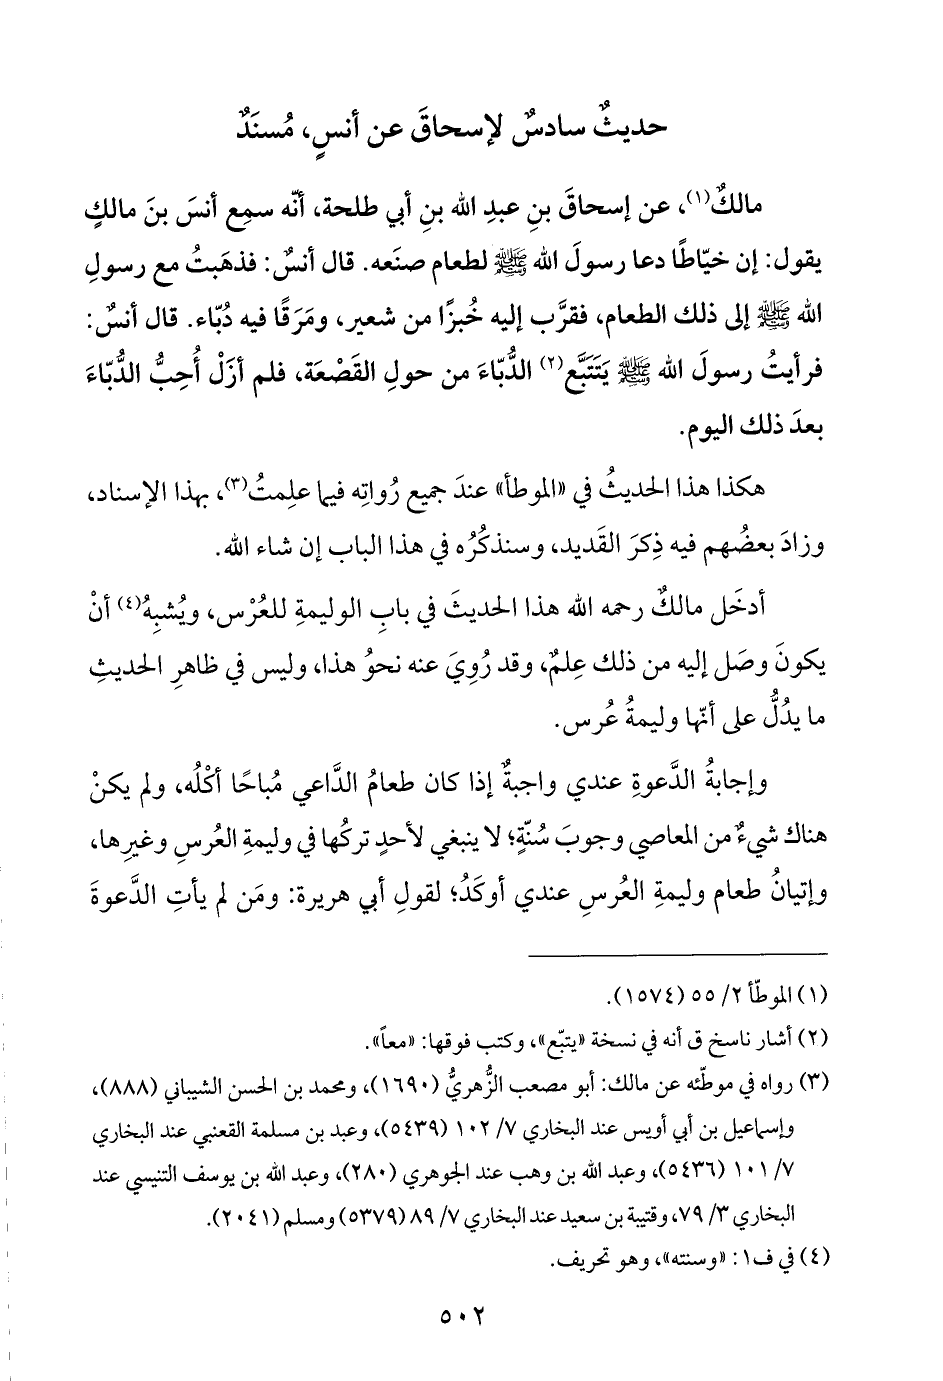 حديثٌ سادسٌ لإسحاقَ عن أنسٍ، مُسنَدٌ
مالكٌ(١)، عن إسحاقَ بنِ عبدِ الله بنِ أبي طلحة، أنّه سمِع أنسَ بنَ مالكٍ
يقول: إن خيّاطًا دعا رسولَ الله ﷺ لطعام صنَعه. قال أنسٌ: فذهَبتُ مع رسولِ
الله ﷺ إلى ذلك الطعام، فقرَّب إليه خُبزًا من شعير، ومَرَقًا فيه دُبّاء. قال أنسٌ:
فرأيتُ رسولَ الله ﷺ يَتَتَبَّع(٢) الدُّبّاءَ من حولِ القَصْعَة، فلم أزَلْ أُحِبُّ الدُّبّاءَ
بعدَ ذلك اليوم.
هكذا هذا الحديثُ في «الموطأ» عندَ جميع رُواتِه فيما علِمتُ(٣)، بهذا الإسناد،
وزادَ بعضُهم فيه ذِكرَ القَديد، وسنذكُرُه في هذا الباب إن شاء الله.
أدخَل مالكٌ رحمه الله هذا الحديثَ في بابِ الوليمةِ للعُرْس، ويُشبِهُ(٤) أنْ
يكونَ وصَل إليه من ذلك عِلمٌ، وقد رُوِيَ عنه نحوُ هذا، وليس في ظاهرِ الحديثِ
ما يدُلُّ على أنّها وليمةُ عُرس.
وإجابةُ الدَّعوةِ عندي واجبةٌ إذا كان طعامُ الدَّاعي مُباحًا أكْلُه، ولم يكنْ
هناك شيءٌ من المعاصي وجوبَ سُنّةٍ؛ لا ينبغي لأحدٍ تركُها في وليمةِ العُرسِ وغيرِها،
وإتيانُ طعام وليمةِ العُرسِ عندي أوكَدُ؛ لقولِ أبي هريرة: ومَن لم يأتِ الدَّعوةَ
(١) الموطّأ ٢/ ٥٥ (١٥٧٤).
(٢) أشار ناسخ ق أنه في نسخة «يتبّع»، وكتب فوقها: «معاً».
(٣) رواه في موطّئه عن مالك: أبو مصعب الزُّهريُّ (١٦٩٠)، ومحمد بن الحسن الشيباني (٨٨٨)،
وإسماعيل بن أبي أويس عند البخاري ٧/ ١٠٢ (٥٤٣٩)، وعبد بن مسلمة القعنبي عند البخاري
٧/ ١٠١ (٥٤٣٦)، وعبد الله بن وهب عند الجوهري (٢٨٠)، وعبد الله بن يوسف التنيسي عند
البخاري ٣/ ٧٩، وقتيبة بن سعيد عند البخاري ٧/ ٨٩ (٥٣٧٩) ومسلم (٢٠٤١).
(٤) في ف١: «وسنته»، وهو تحريف.
٥٠٢